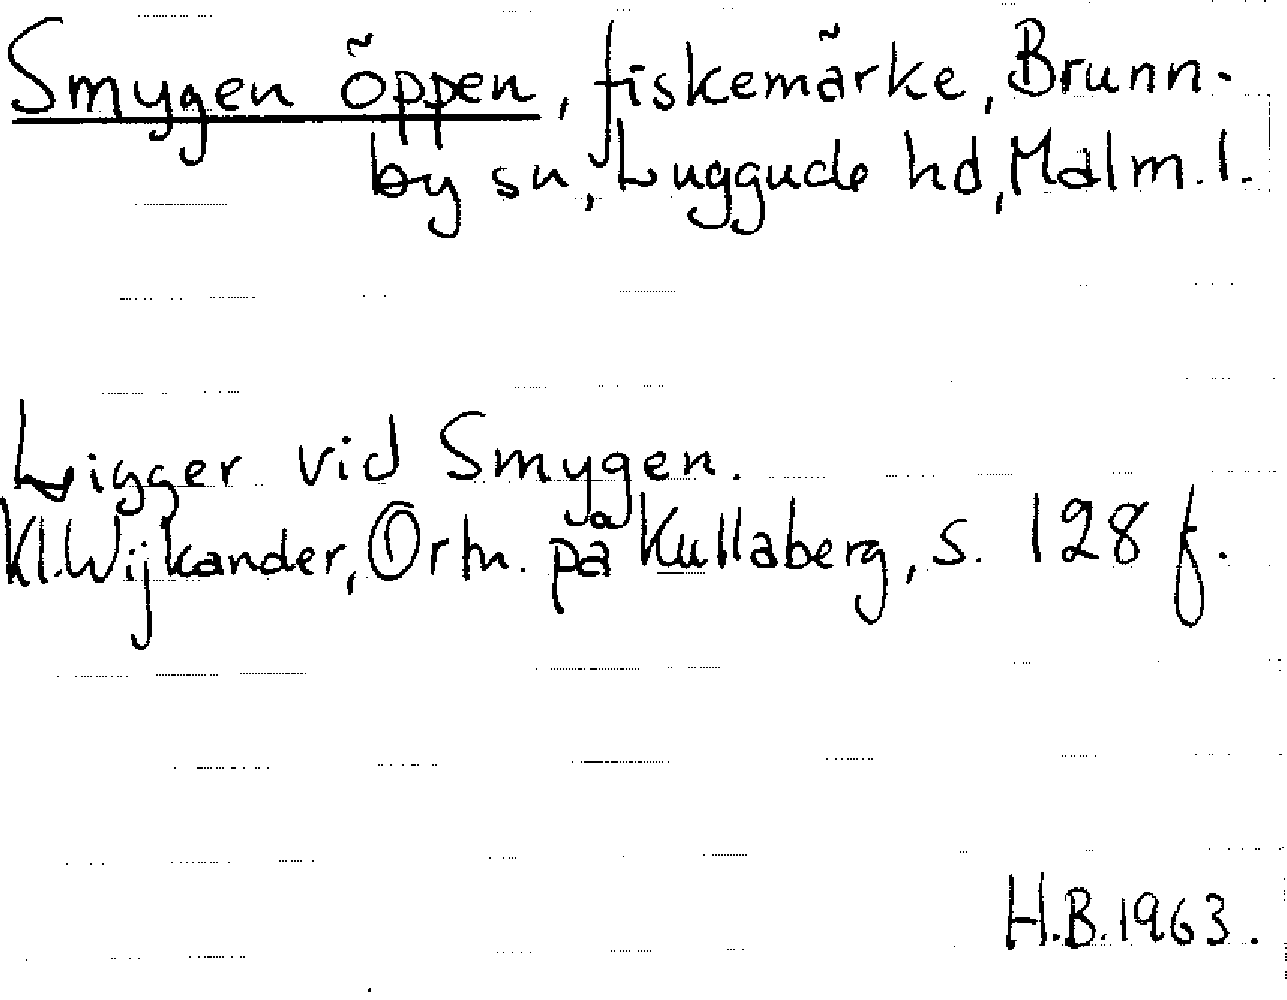 Smygen öppen, fiskemärke, Brunn-
by sn, Luggude hd, Malm. l.
Ligger vid Smygen.
Kl. Wijkander, Ortn. på Kullaberg, s. 128 f.
H.B. 1963.